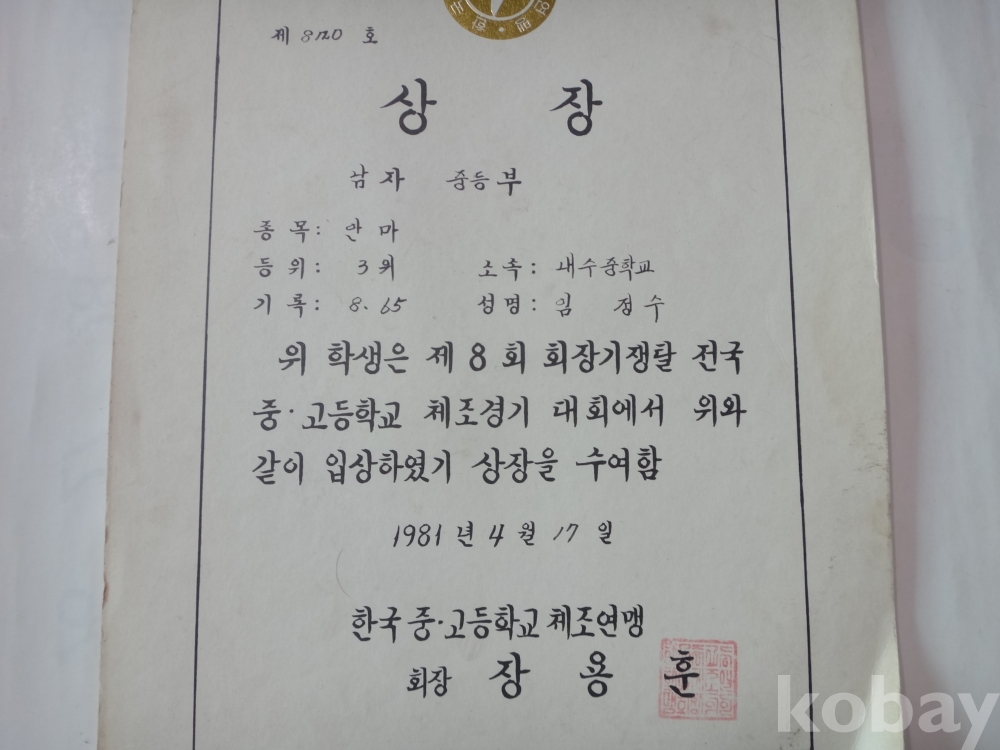 제 8120 호
상 장
남자 중등부
종 목: 안 마
등 위: 3 위 소 속: 내수중학교
기 록: 8.65 성 명: 임 정수
위 학생은 제 8 회 회장기쟁탈 전국
중·고등학교 체조경기 대회에서 위와
같이 입상하였기 상장을 수여함
1981 년 4 월 17 일
한국 중·고등학교 체조연맹
회장 장 용 훈
kobay